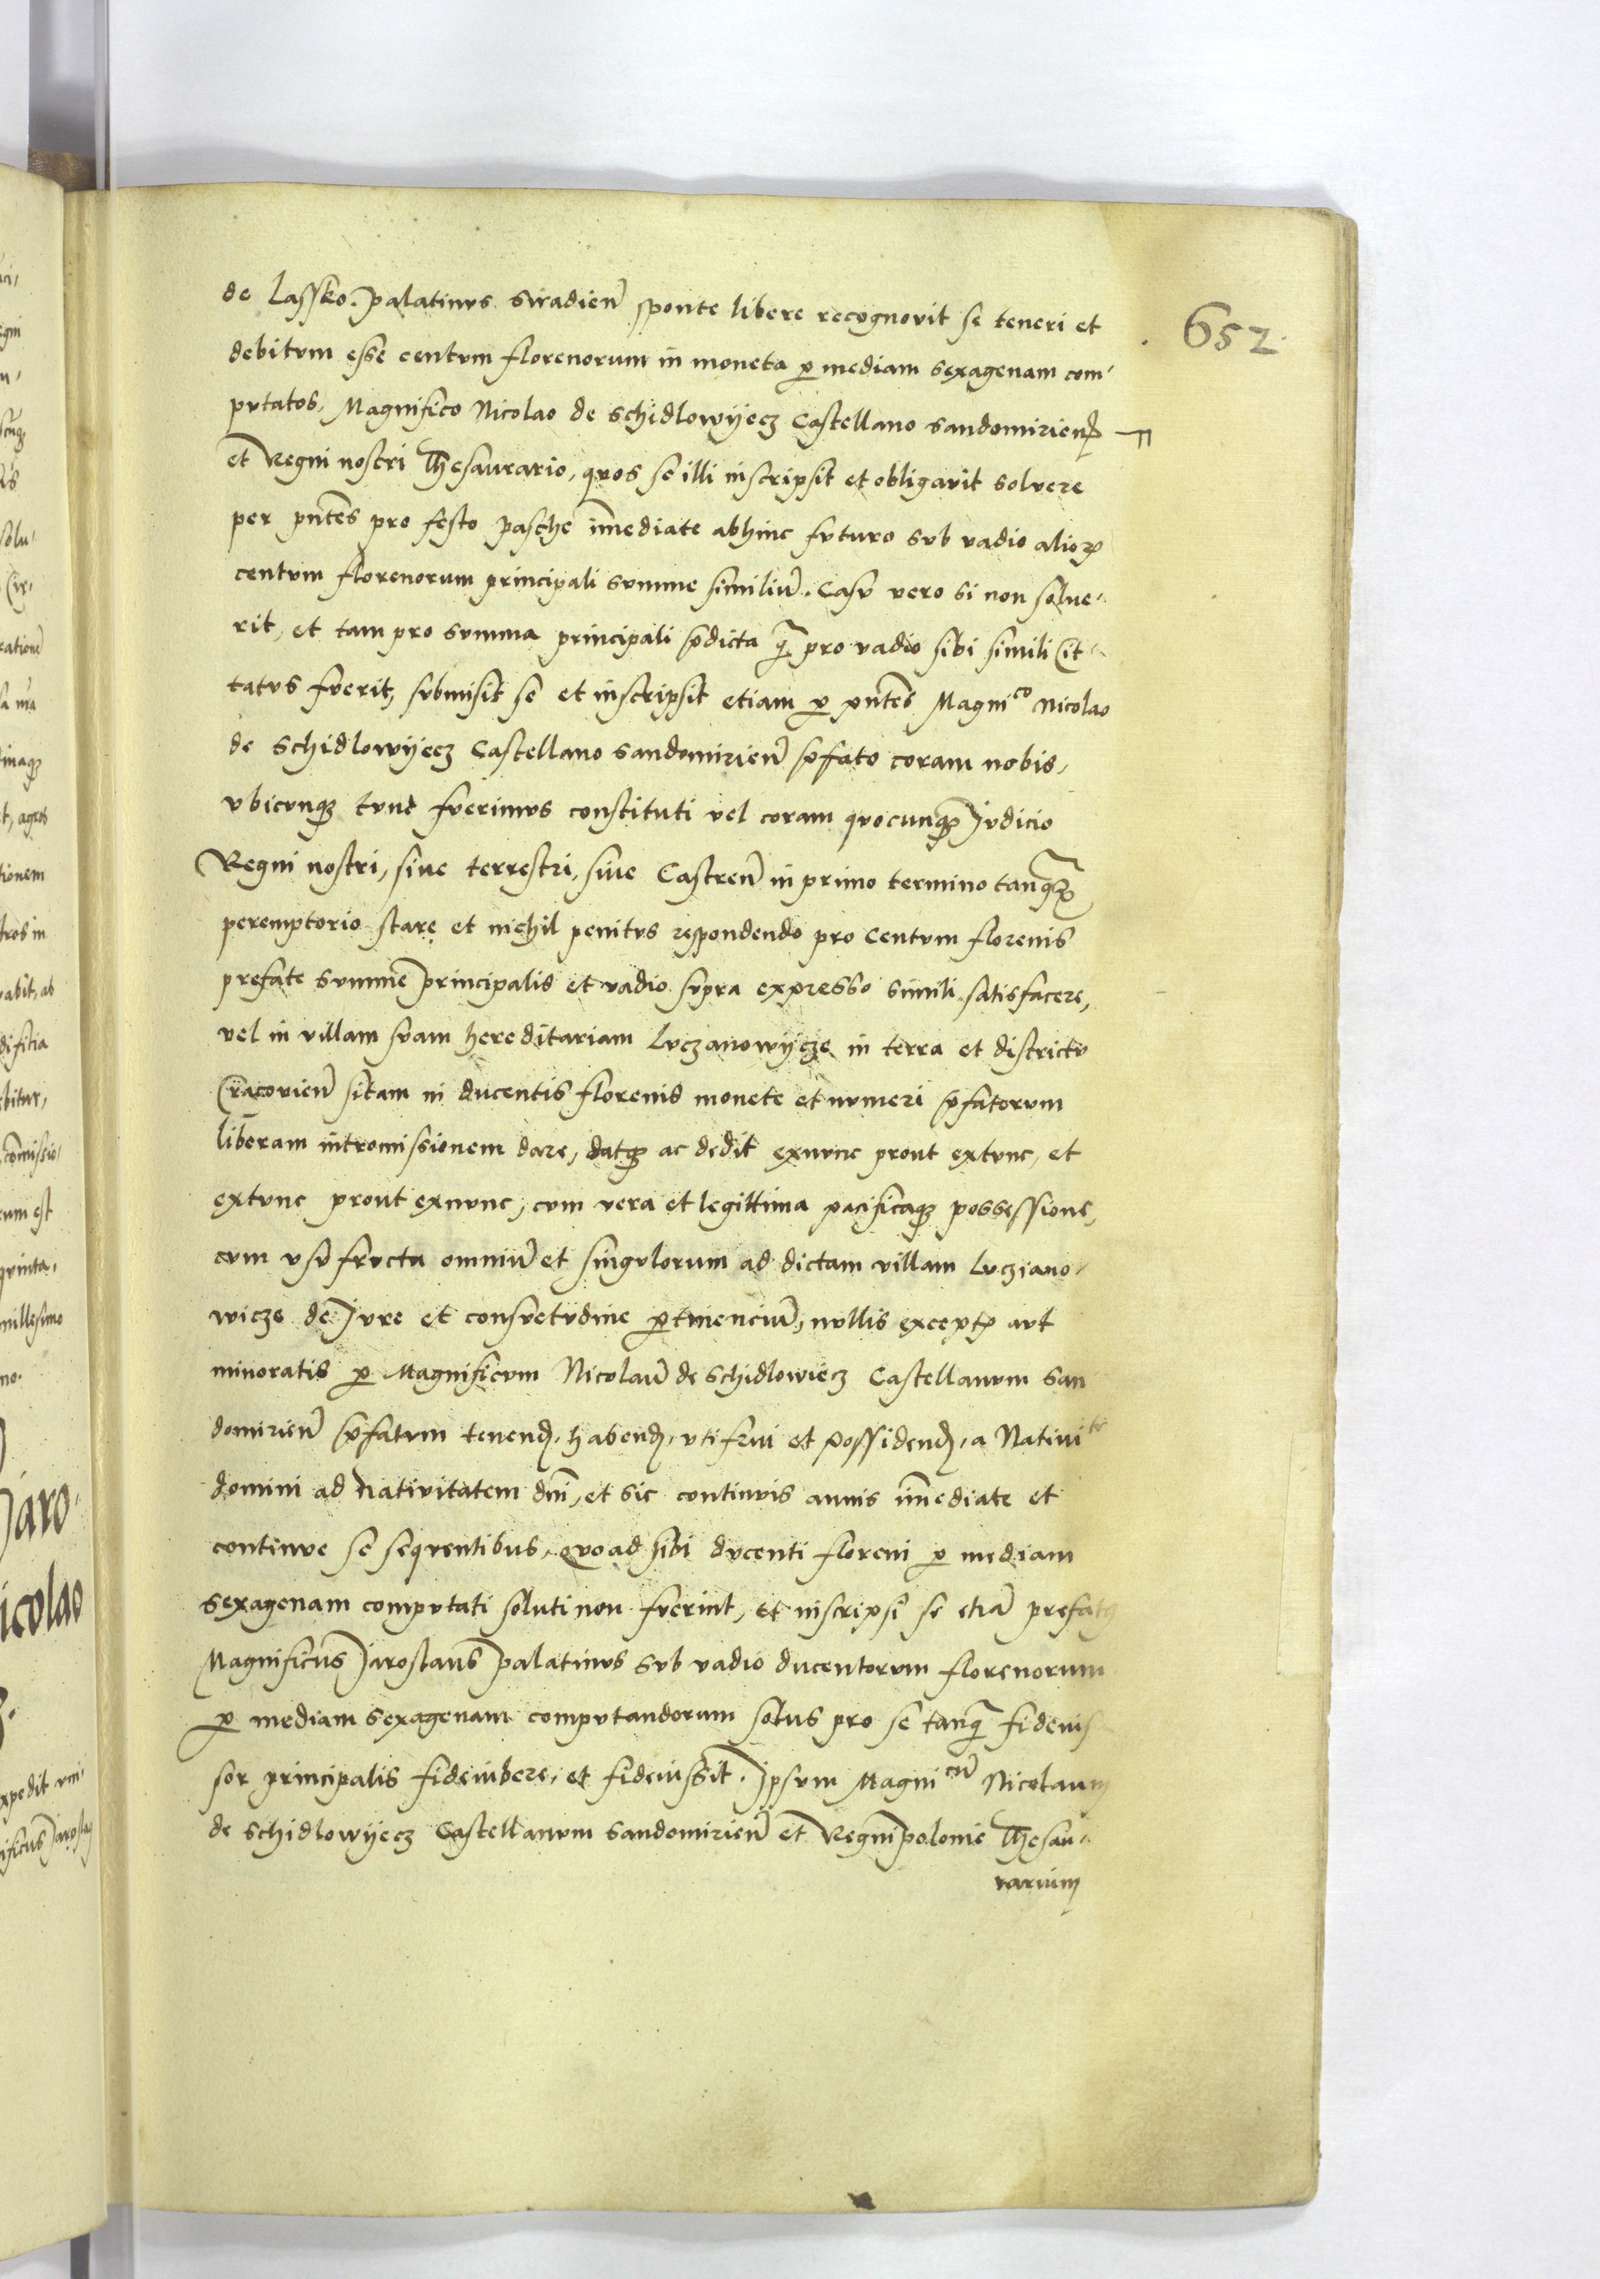 652
de Lassko Palatinus Siradien̄ sponte libere recognovit se teneri et
debitvm esse centvm florenorum in moneta ꝑ mediam sexagenam com-
pvtatos, Magnifico Nicolao de Schidlowijecz Castellano Sandomirien̄
et Regni nostri Thesaurario, qvos se illi inscripsit et obligavit solvere
per pn̄tes pro festo pasche im̄ediate abhinc fvturo svb vadio alioꝝ
centvm florenorum principali svmme similiū. Casv vero si non solve-
rit, et tam pro svmma principali p̄dicta q̄ pro vadio sibi simili Cit-
tatvs fverit, svbmisit se et inscripsit etiam ꝑ pn̄tes Magnico Nicolao
de Schidlowijecz Castellano Sandomirien̄ p̄fato coram nobis,
vbicvnqꝫ tvnc fverimvs constituti vel coram qvocunqꝫ Jvdicio
Regni nostri, sive terrestri, sive Castren̄ in primo termino tanqꝫ
peremptorio stare et nichil penitvs respondendo pro centvm florenis
prefate svmme principalis et vadio svpra expresso simili satisfacere,
vel in villam svam hereditariam Lvczanowijcze in terra et districtv
Cracovien̄ sitam in ducentis florenis monete et nvmeri p̄fatorvm
liberam intromissionem dare, datqꝫ ac dedit exnvnc prout extvnc, et
extvnc prout exnvnc, cvm vera et legittima pacificaqꝫ possessione,
cvm vsvfrvctu omniū et singvlorum ad dictam villam Lvcziano-
wicze de Jvre et consvetvdine ꝑtinenciū, nvllis exceptꝭ avt
minoratis ꝑ Magnificvm Nicolaū de Schidlowiecz Castellanvm San
domirien̄ p̄fatvm tenenđ, habenđ, vtifrui et possidenđ, a Nativite
domini ad nativitatem dn̄i, et sic continvis annis im̄ediate et
continve se seqventibus, qvoad sibi dvcenti floreni ꝑ mediam
sexagenam compvtati soluti non fverint, et inscripsi se etiā prefatꝰ
Magnificus Jaroslaus Palatinvs svb vadio ducentorvm florenorum
ꝑ mediam sexagenam compvtandorum solus pro se tanq̄ fideius
sor principalis fideiubere, et fideiussit. Jpsvm Magnicū Nicolaum
de Schidlowijecz Castellanvm Sandomirien̄ et Regni polonie Thesau-
rarium